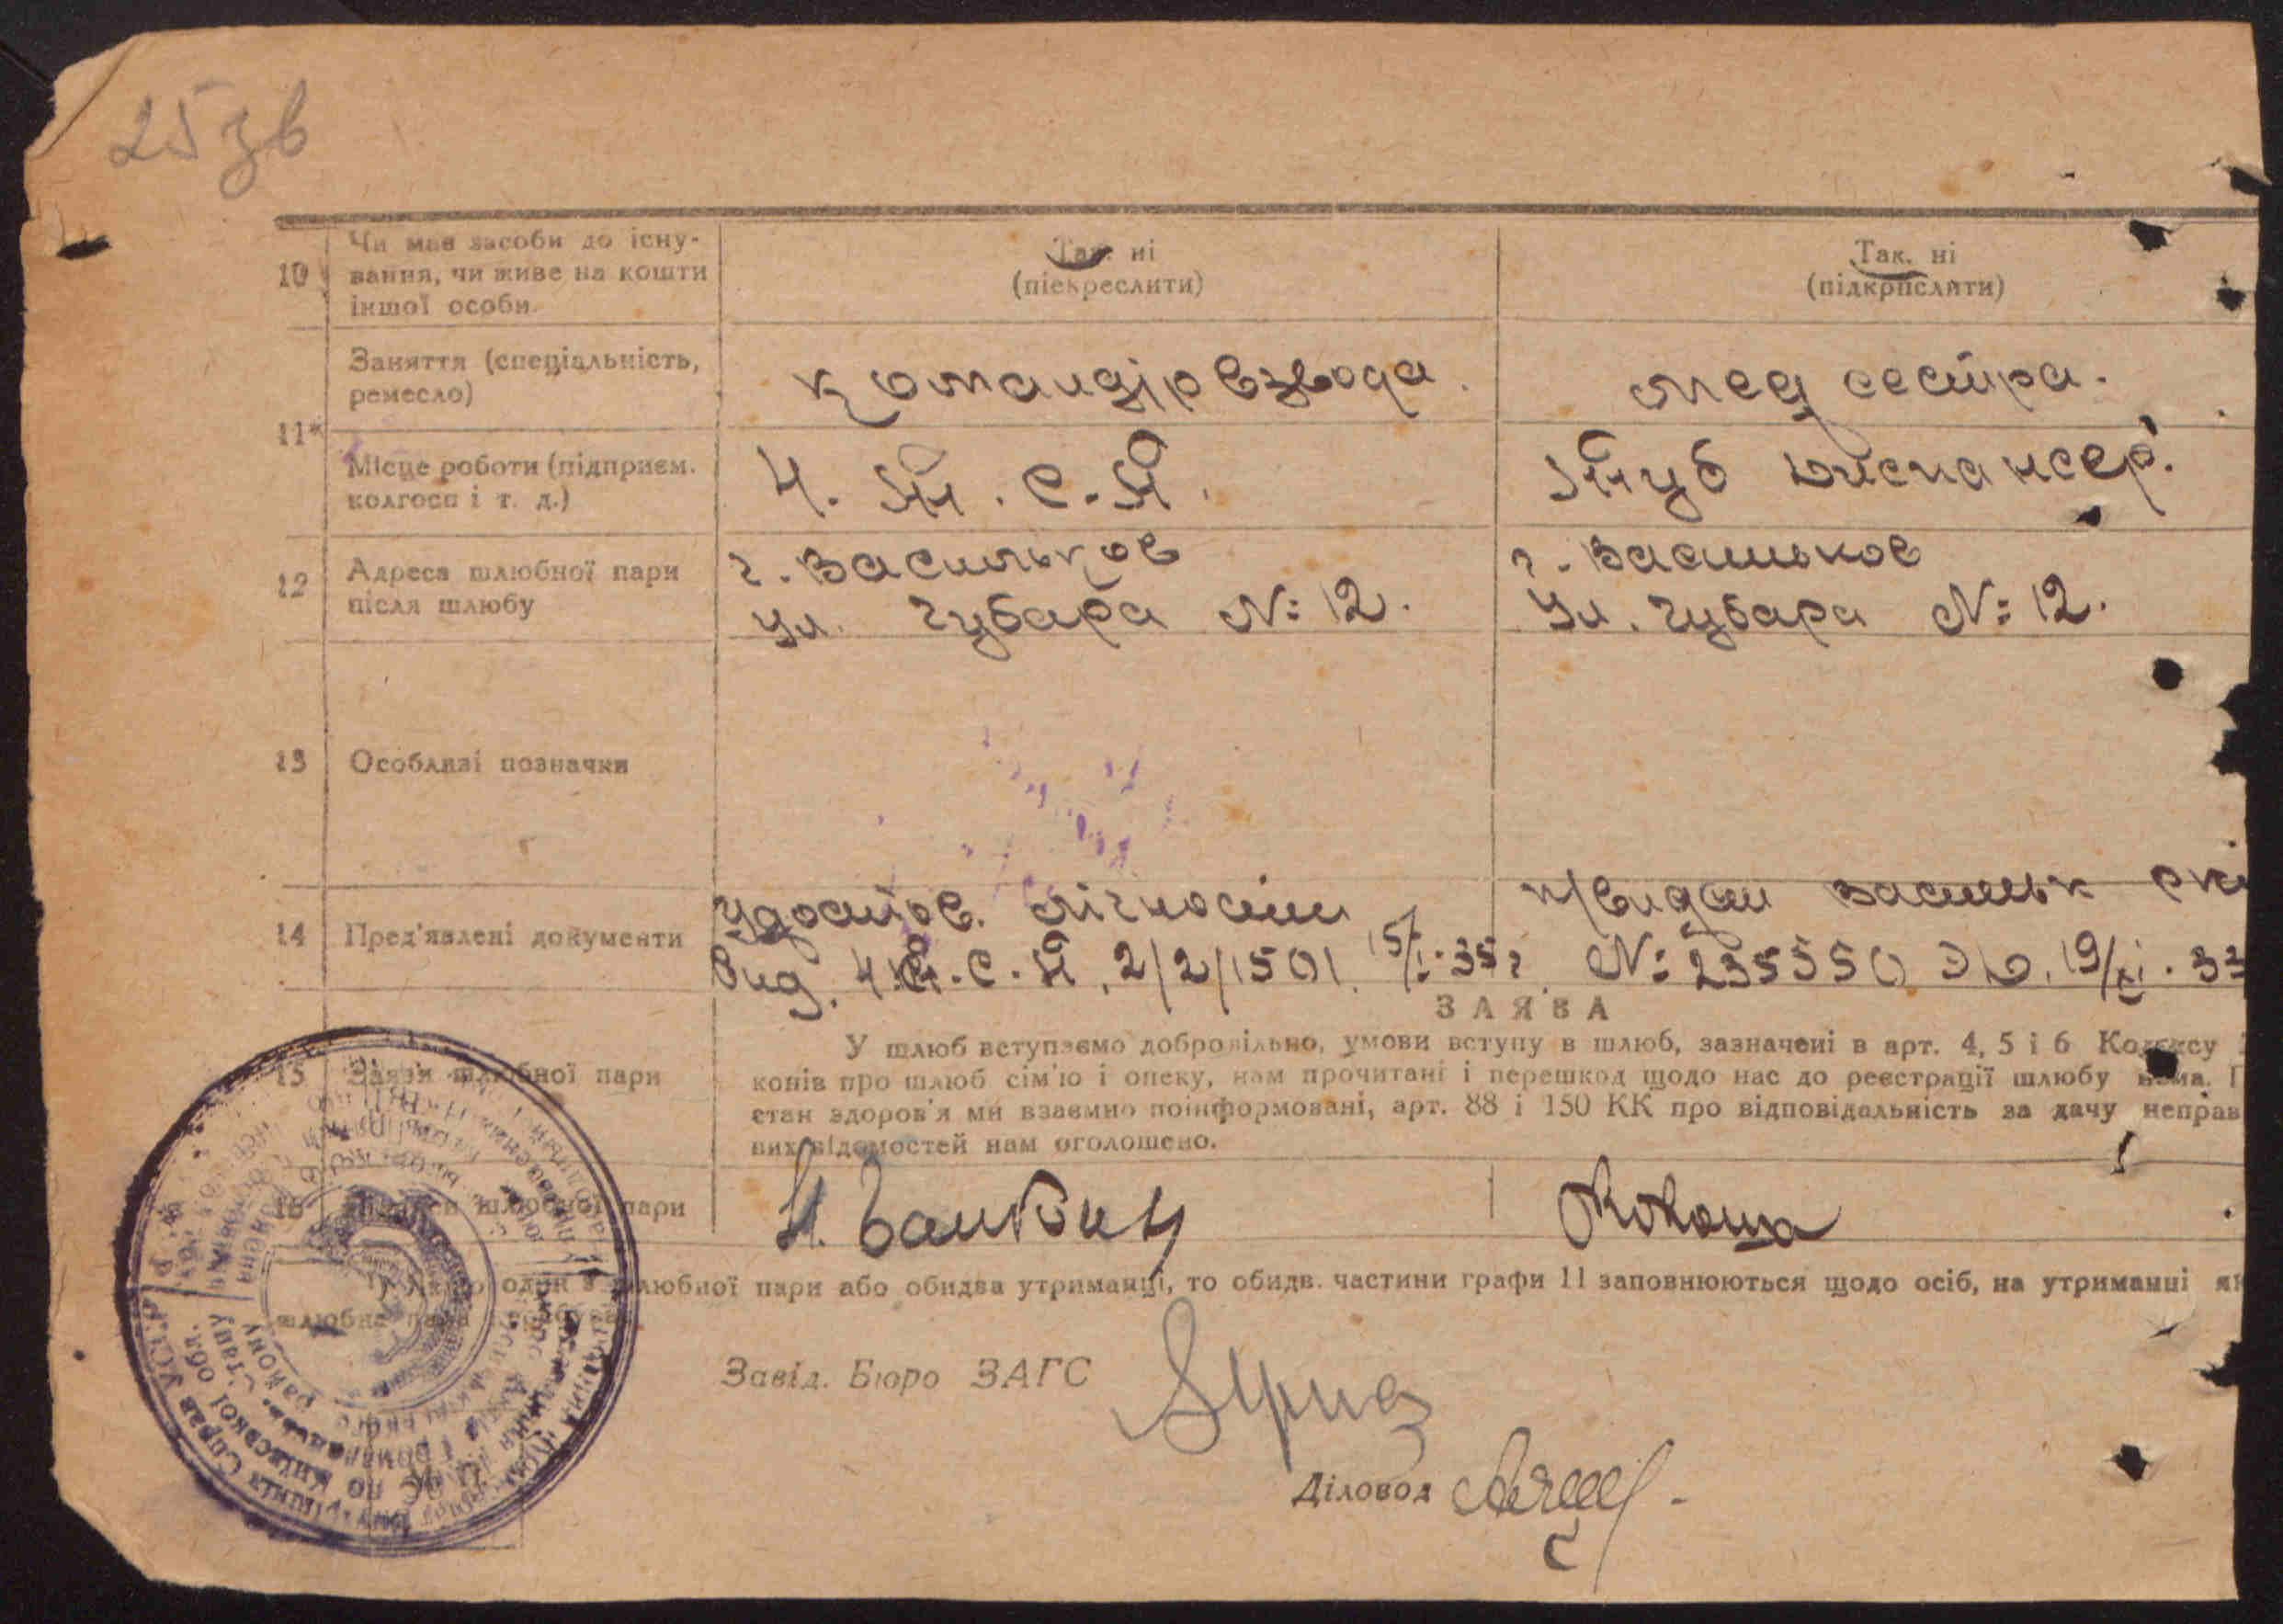 25 зв
10 Чи має засоби до існу-
вання, чи живе на кошти
іншої особи.
Так. ні
(піекреслити)
Так. ні
(підкрислити)
11*
Заняття (спеціальність,
ремесло)
командір взвода.
мед сестра.
Місце роботи (підприєм.
колгосп і т. д.)
4. Т. С. П.
Туб диспансер.
12 Адреса шлюбної пари
після шлюбу
г. Васильков
ул. Чубара №: 12.
г. Васильков
ул. Чубара №: 12.
13 Особливі позначки
14 Пред'явлені документи
удостов. лічности
Вид. 4.Т.С.П. 2/2/1501. 15/I-35 г.
Васильк
№: 235550 19/XI.
15 Заяви шлюбної пари
ЗАЯВА
У шлюб вступаємо добровільно, умови вступу в шлюб, зазначені в арт. 4, 5 і 6 Кодексу
конів про шлюб сім'ю і опеку, нам прочитані і перешкод щодо нас до реєстрації шлюбу нема. П
стан здоров'я ми взаємно поінформовані, арт. 88 і 150 КК про відповідальність за дачу неправ
вих відомостей нам оголошено.
16 Підписи шлюбної пари
*) Якщо один з шлюбної пари або обидва утриманці, то обидв. частини графи 11 заповнюються щодо осіб, на утриманні як
шлюбна пара
Завід. Бюро ЗАГС
Діловод
Справ УСРР
по Київської обл.